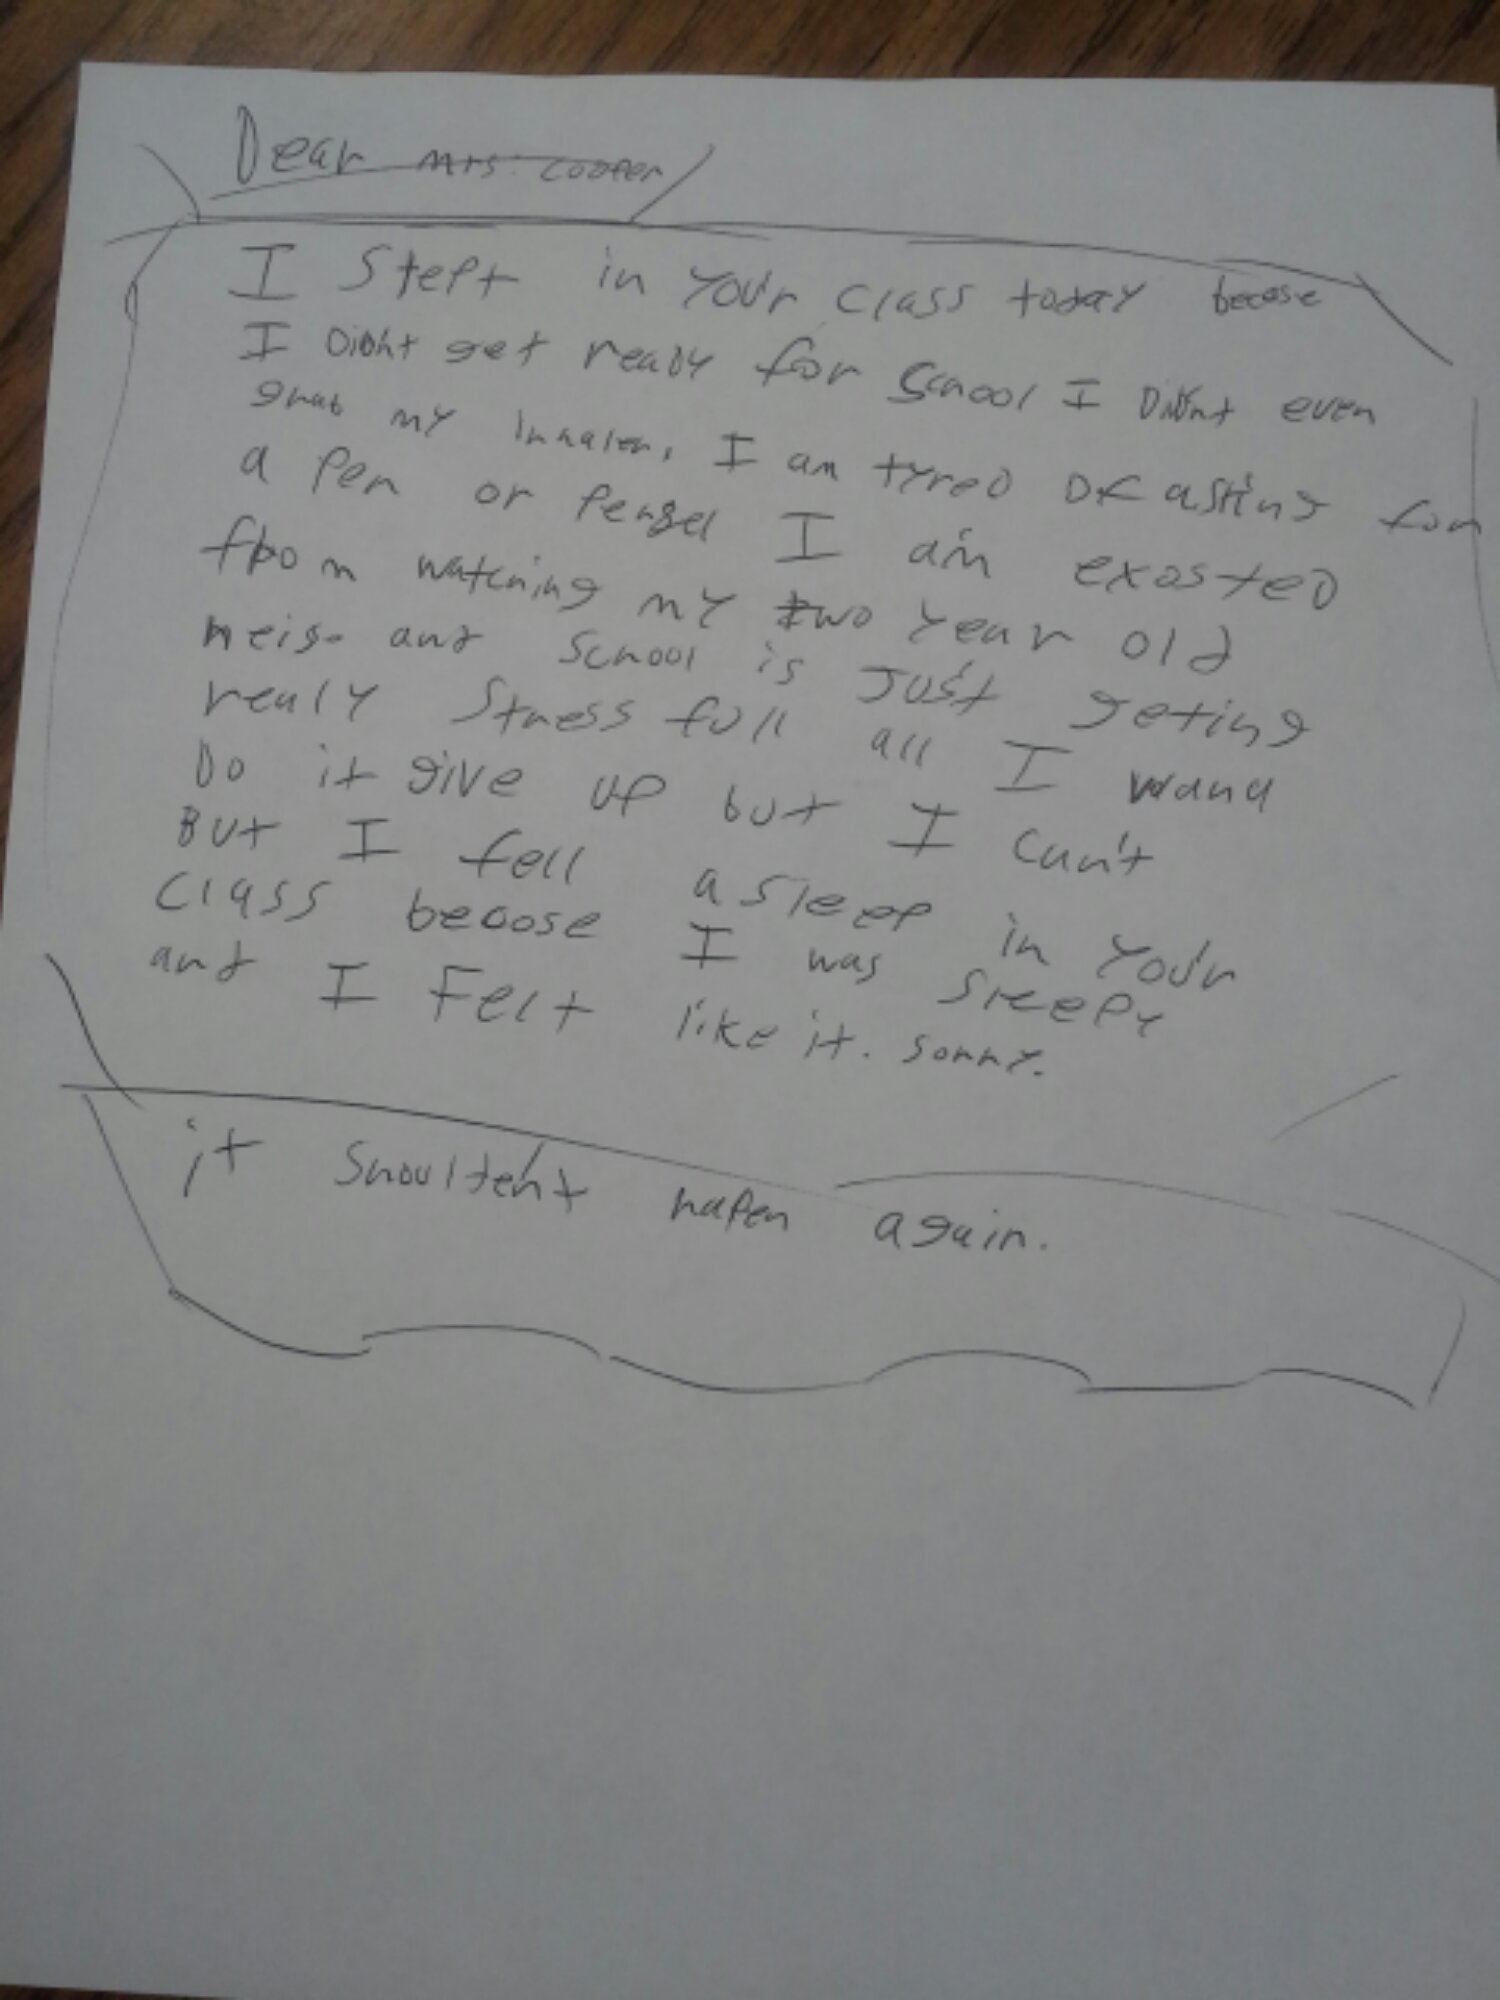 Dear Mrs. Cooper
I Slept in your class today becose
I Didnt get ready for School I Didnt even
grab my inhaler, I am tyred of asking for
a pen or penzel I am exosted
from watching my two year old
neise and school is just geting
realy stress full all I wana
Do it give up but I can't
But I fell asleep in your
class becose I was sleepy
and I Felt like it. sorry.
it shouldtent hapen again.